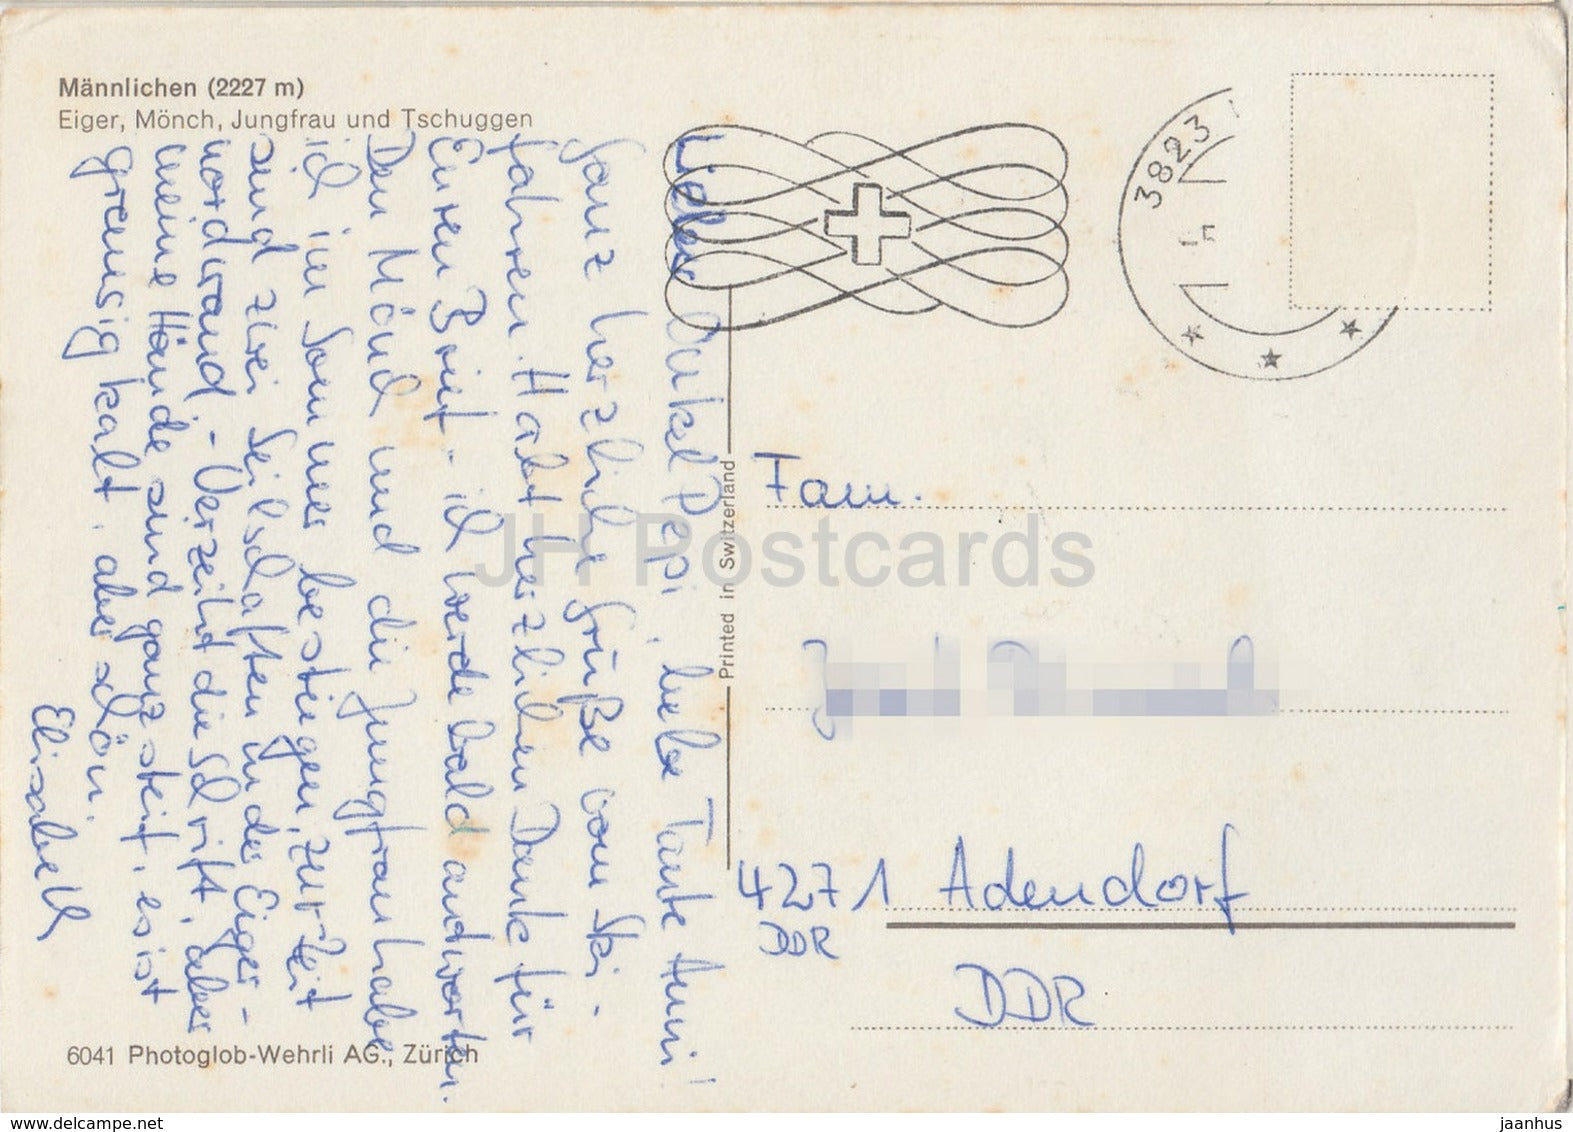 Männlichen (2227 m)
Eiger, Mönch, Jungfrau und Tschuggen
Lieber Onkel Pepi, liebe Tante Anni!
Ganz herzliche Grüße vom Ski-
fahren. Habt herzlichen Dank für
Euren Brief - ich werde bald andworten.
Den Mönch und die Jungfrau habe
ich im Sommer bestiegen, zur Zeit
sind zwei Seilschaften in der Eiger-
nordwand. - Verzeiht die Schrift, aber
meine Hände sind ganz steif, es ist
grausig kalt, aber schön.
Elisabeth
3823
Printed in Switzerland
Fam.
4271 Adendorf
DDR
DDR
6041 Photoglob-Wehrli AG., Zürich
JH Postcards
www.delcampe.net
jaanhus